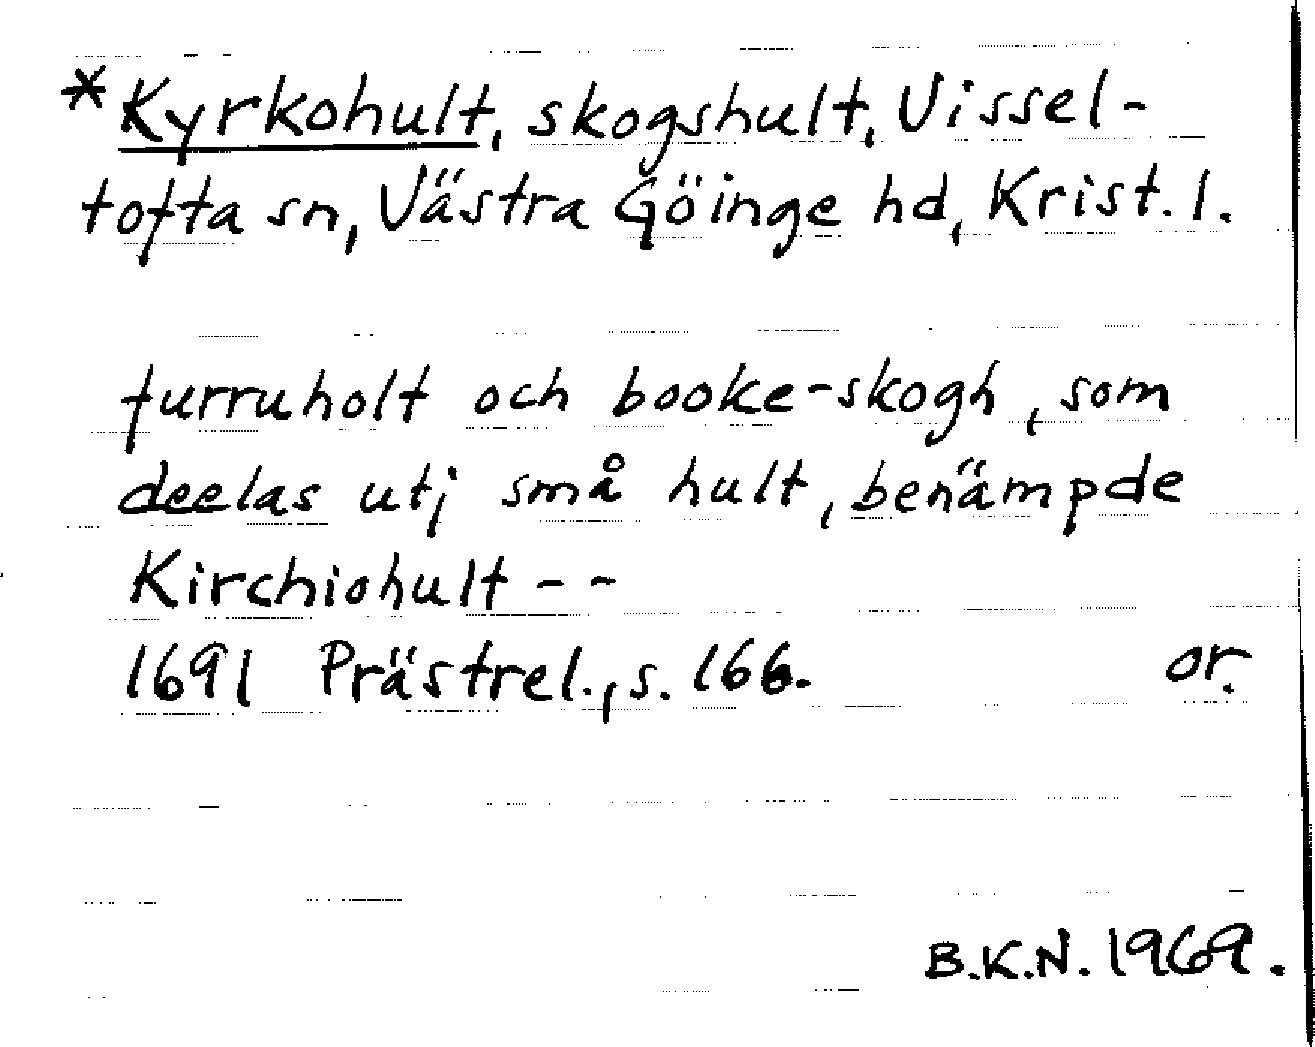 *Kyrkohult, skogshult, Vissel-
tofta sn, Västra Göinge hd, Krist. l.
furruholt och booke-skogh, som
deelas utj små hult, benämpde
Kirchiohult - -
1691 Prästrel., s. 166. or.
B.K.N. 1969.